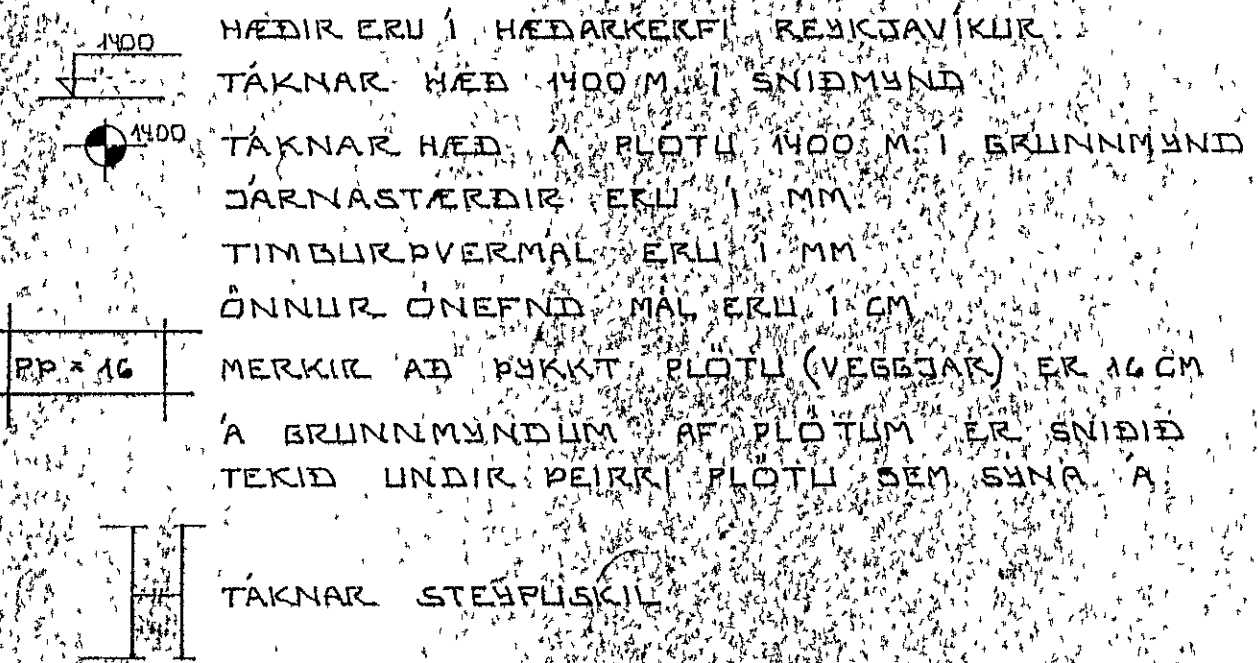 HÆÐIR ERU Í HÆÐARKERFI REYKJAVÍKUR.
1400
TÁKNAR HÆÐ 1400 M. Í SNIÐMYND
1400
TÁKNAR HÆÐ Á PLÖTU 1400 M. Í GRUNNMYND
JÁRNASTÆRÐIR ERU Í MM.
TIMBURÞVERMÁL ERU Í MM
ÖNNUR ÓNEFND MÁL ERU Í CM
ÞP = 16
MERKIR AÐ ÞYKKT PLÖTU (VEGGJAR) ER 16 CM
Á GRUNNMYNDUM AF PLÖTUM ER SNIÐIÐ
TEKIÐ UNDIR ÞEIRRI PLÖTU SEM SÝNA Á.
TÁKNAR STEYPUSKIL